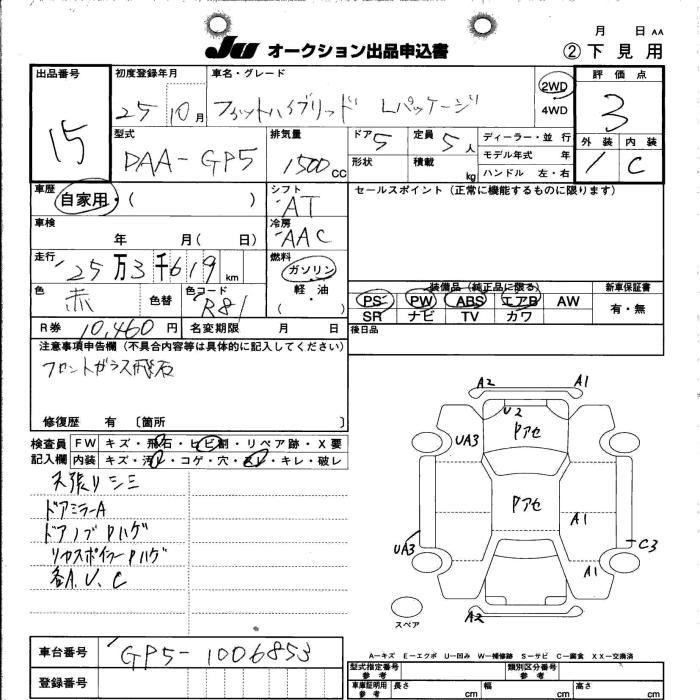 月 日 AA
JU オークション出品申込書 ② 下見用
出品番号 初度登録年月 車名・グレード 評価点
15 25 10月 フィットハイブリッド Lパッケージ 2WD 4WD 3
型式 排気量 ドア 5 定員 5人 ディーラー・並行 外装 内装
DAA-GP5 1500cc 形状 積載 kg モデル年式 年 1 C
ハンドル 左・右
車歴 自家用・( ) シフト AT セールスポイント(正常に機能するものに限ります)
車検 年 月( 日) 冷房 AAC
走行 25万3千619km 燃料 ガソリン 軽・油 ( )
色 赤 色替 色コード R81
装備品(純正品に限る) 新車保証書
PS PW ABS エアB AW 有・無
SR ナビ TV カワ
R券 10,460円 名変期限 月 日 後日品
注意事項申告欄(不具合内容等は具体的に記入してください)
フロントガラス飛石
修復歴 有 〔箇所 〕
検査員 FW キズ・飛石・ヒビ割・リペア跡・X要
記入欄 内装 キズ・汚レ・コゲ・穴・スレ・キレ・破レ
天張リシミ
ドアミラーA
ドアノブPハゲ
リヤスポイラーPハゲ
各A.U.C
A2 A1
U2
Pアセ
UA3
Pアセ
A1
UA3 C3
A1
A2
スペア
A-キズ E-エクボ U-凹み W-補修跡 S-サビ C-腐食 XX-交換済
車台番号 GP5-1006853
登録番号
型式指定番号 参考 類別区分番号 参考
車庫証明用 参考 長さ cm 幅 cm 高さ cm